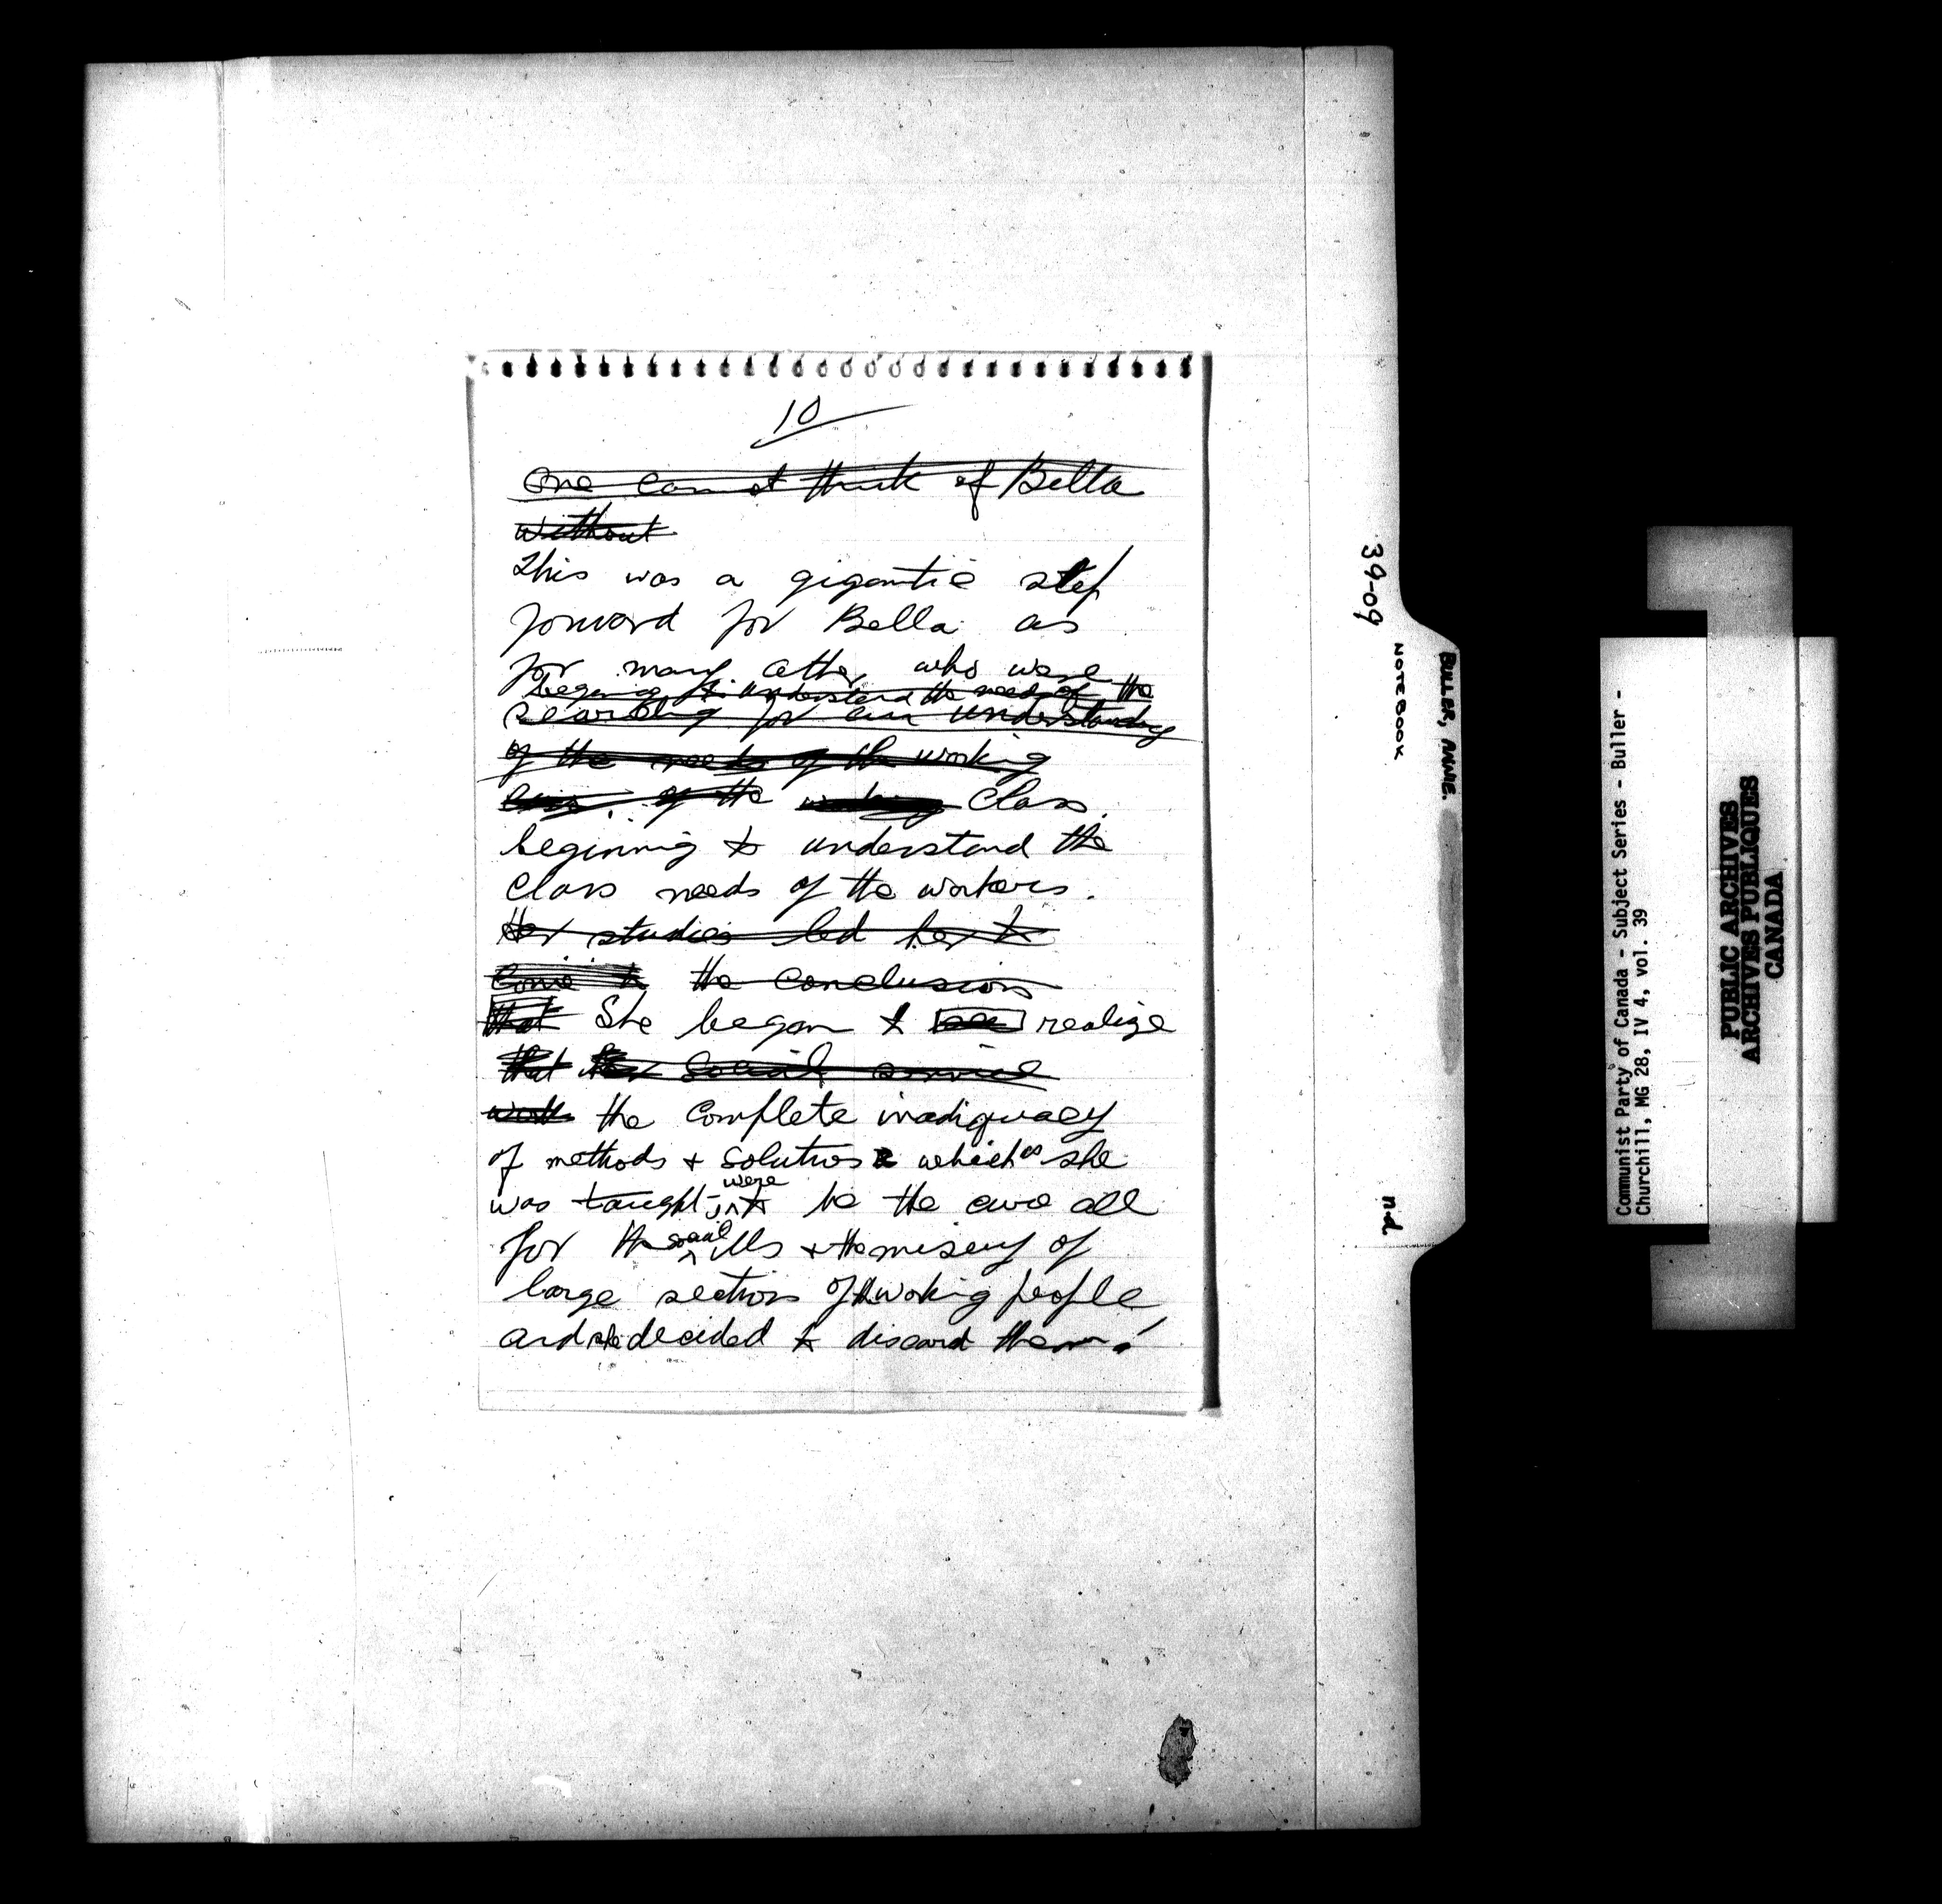 10
One cannot think of Bella
without
This was a gigantic step
forward for Bella as
for many other who were
begining to understand the needs of the
searching for an understanding
of the needs of the working
of the working class.
beginning to understand the
class needs of the workers.
Her studies led her to
come to the conclusion
that She began to see realize
that her social service
work the complete inadiquacy
of methods + solutions which as she
was taught - were to be the cure all
for the social ills + the misery of
large sections of the working people
and she decided to discard them!
39-09
NOTEBOOK
BULLER, ANNIE.
n.d.
Communist Party of Canada - Subject Series - Buller -
Churchill, MG 28, IV 4, vol. 39
PUBLIC ARCHIVES
ARCHIVES PUBLIQUES
CANADA